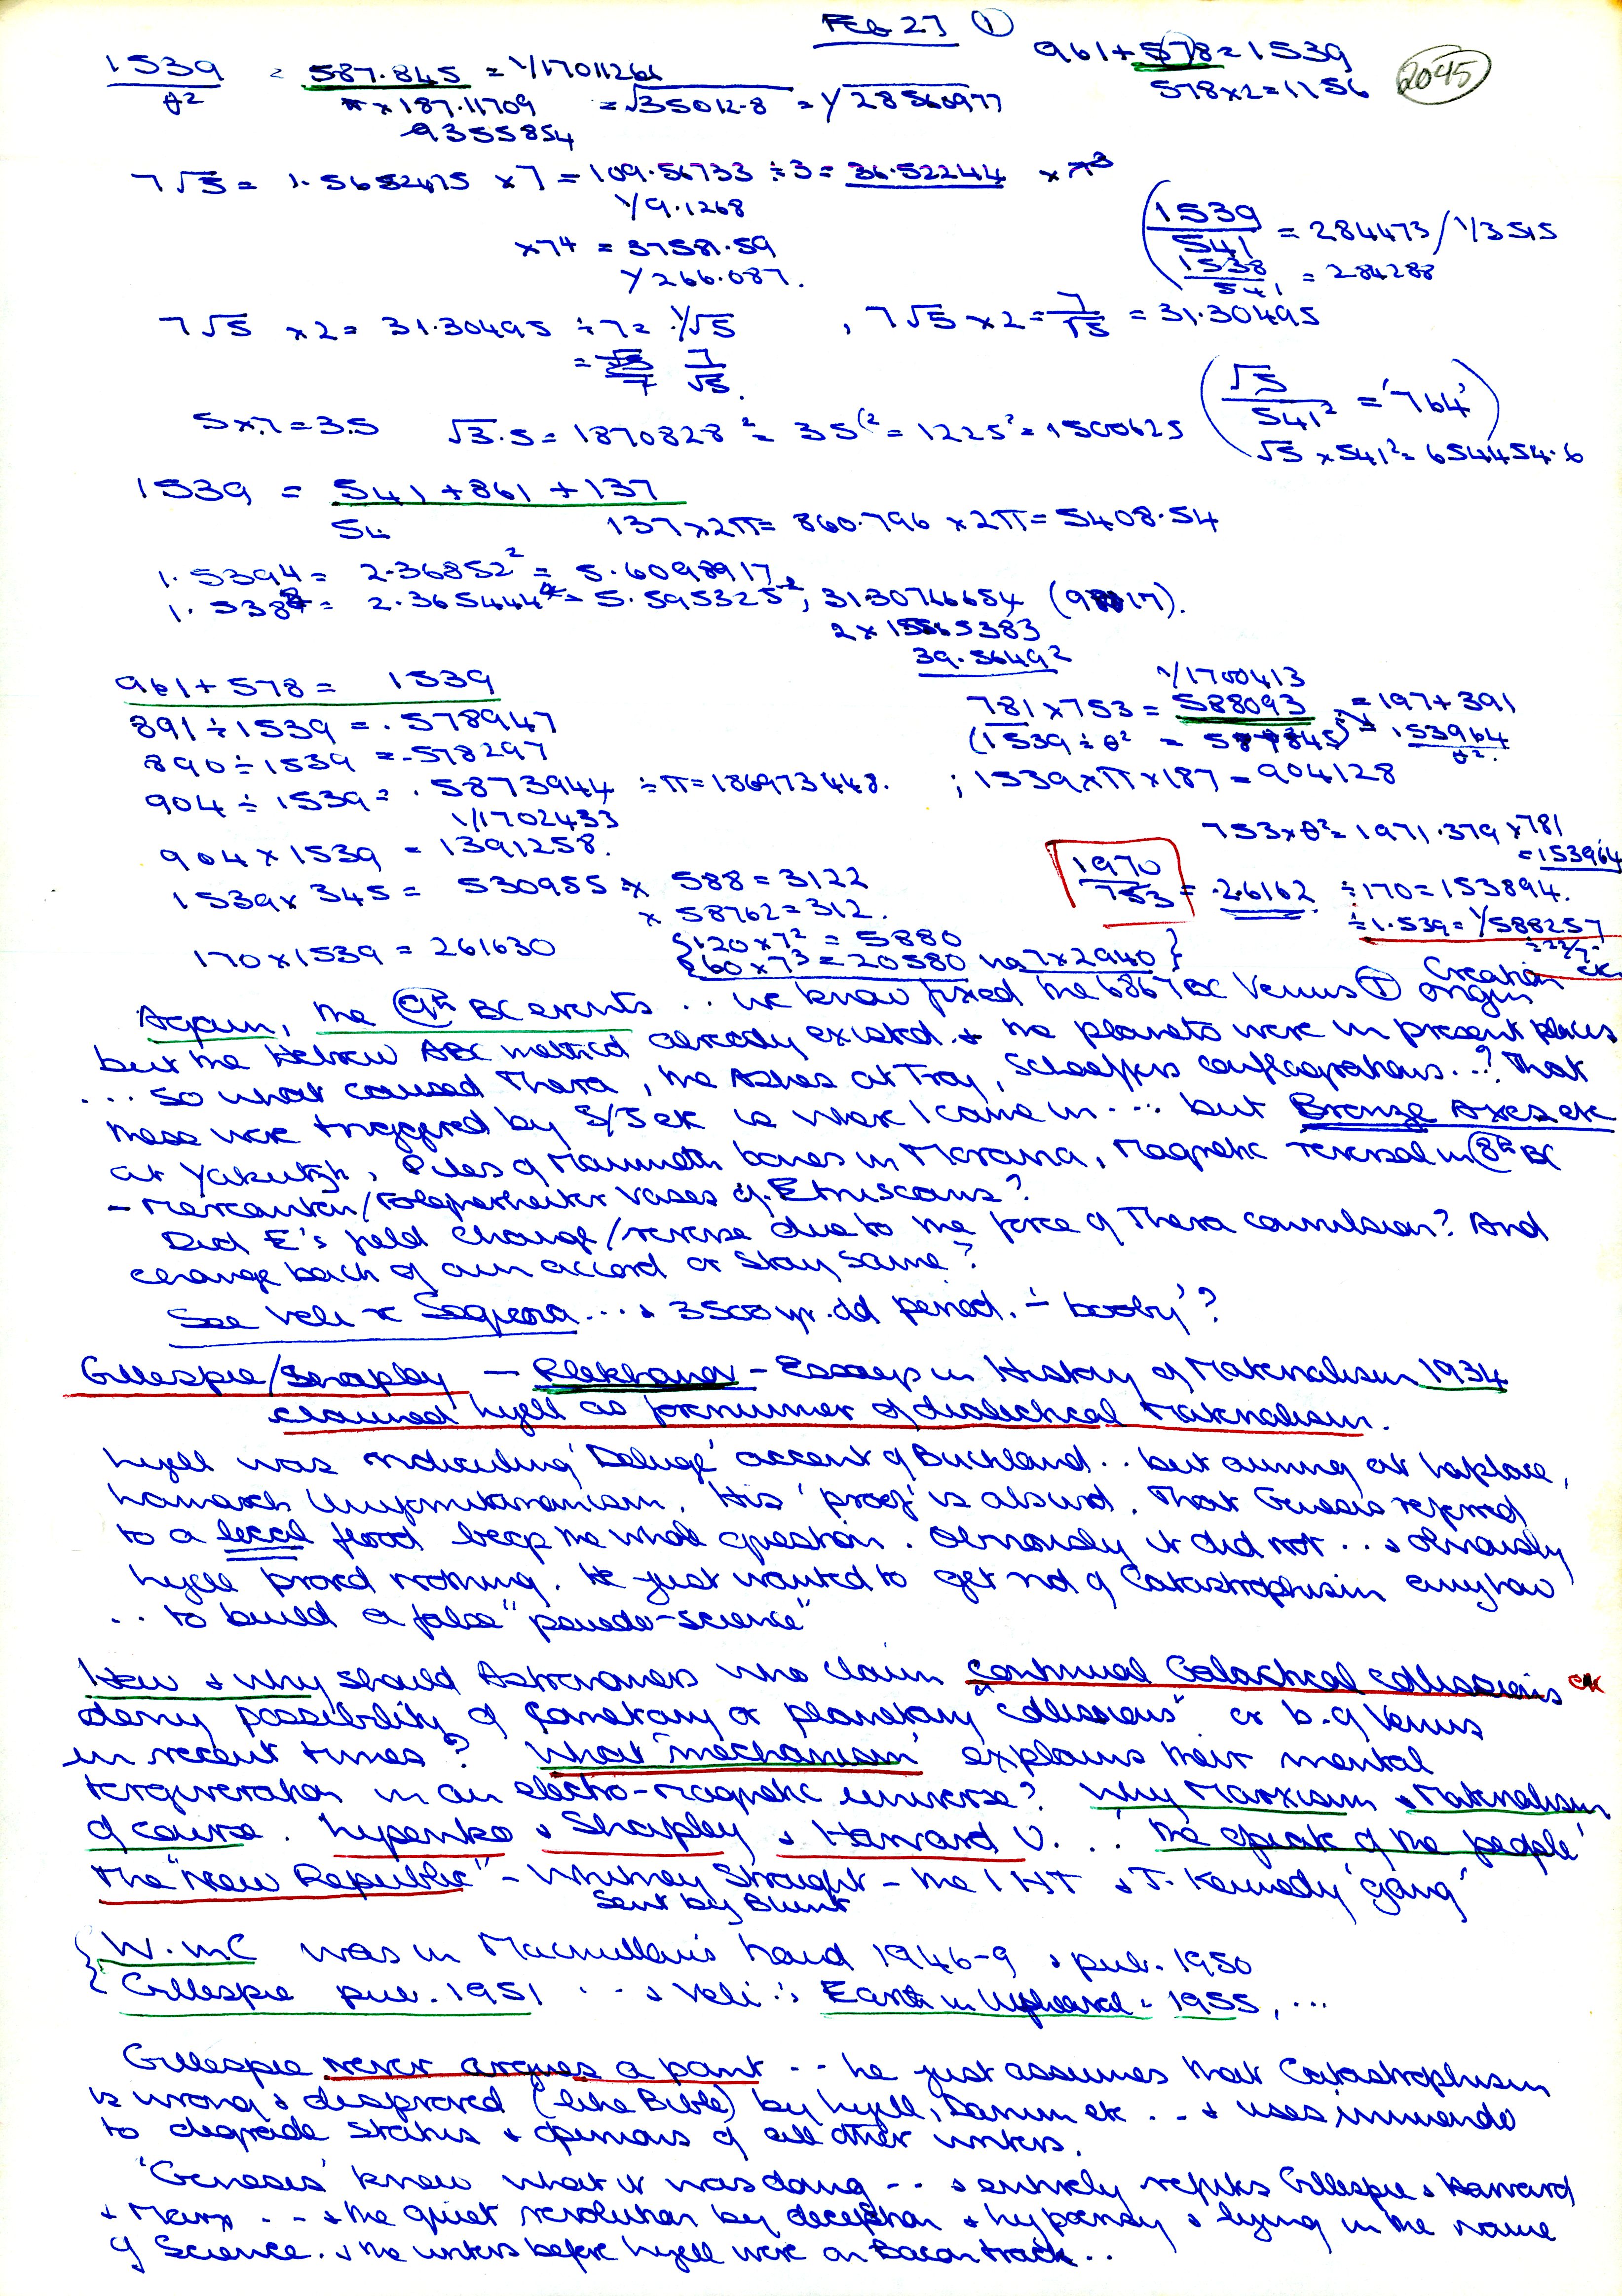 FEB 27 ①
961+578=1539
578x2=1156
2045
1539/θ² = 587.845 = 1/17011266
π x 187.11709 = √35012.8 = 1/28560977
9355854
7√5 = 1.5652475 x 7 = 109.56733 ÷ 3 = 36.52244 x 7³
1/9.1268
x7⁴ = 37581.59
1/266.087.
(1539/541 = 284473 / 1/3515
1538/541 = 284288
7√5 x 2 = 31.30495 ÷ 7 = 1/√5 , 7√5 x 2 = 7/√5 = 31.30495
= 7/√5.
(√5/541² = '764')
√5 x 541² = 654454.6
5x.7=3.5 √3.5 = 1870828² = 35(² = 1225² = 1500625
1539 = 541+861+137
54 137x2π= 860.796 x2π= 5408.54
1.5394 = 2.36852² = 5.6098917
1.538 = 2.365444 = 5.595325², 31.30766654 (9817).
2x 15565383
39.5649²
961+578 = 1539
891÷1539 = .578947
890÷1539 = .578297
904÷1539 = .5873944 ÷π=186973448. ; 1539xπx187 = 904128
1/1702433
1/1700413
781x753 = 588093 = 197+391
(1539÷θ² = 587845) = 153964/θ².
904x1539 = 1391258.
753xθ² = 1971.379 x781
=153964
1539x345 = 530955 x 588 = 3122
x 58762 = 312.
1970/753 = 2.6162 ÷170=153894.
÷1.539=1/588257
÷22/7.
170x1539 = 261630 {120x7² = 5880
{60x7³ = 20580 7x2940}
Creation etc
Again, the 9th BC events .. we know fixed the 6867 BC Venus ① origin
but the Hebrew ABC method already existed & the planets were in present places
... So what caused Thera, the Ashes at Troy, Schaeffers conflagrations..? That
these were triggered by S/J etc is where I came in ... but Bronze Axes etc
at Yakutsk, Piles of Mammoth bones in Moravia, Magnetic reversal in 8th BC
- Mercanton/Folgerheiter vases of Etruscans?
Did E's field change/reverse due to the force of Thera convulsion? And
change back of own accord or stay same?
See Veli x Sequoia ... & 3500 yr. old period. ÷ booby'?
Gillespie/Shapley — Plekhanov - Essays in History of Materialism 1934
claimed Lyell as forerunner of dialectical Materialism.
Lyell was ridiculing 'Deluge' account of Buckland .. but aiming at Laplace,
Lamarck Uniformitarianism. His 'proof' is absurd. That Genesis referred
to a local flood begs the whole question. Obviously it did not ... & obviously
Lyell proved nothing. He just wanted to get rid of Catastrophism anyhow
.. to build a false "pseudo-science"
How & why should Astronomers who claim continual Galactical collisions etc
deny possibility of planetary "collisions" or b. of Venus
in recent times? What "mechanism" explains their mental
tergiversation in an electro-magnetic universe? Why Marxism & Materialism
of course. Lysenko & Shapley & Harvard U. .. 'the of the people'
The "New Republic" - Whitney Straight - the IHT & J. Kennedy 'gang'
Sent by Blunt
{W.inC was in Macmillan's hand 1946-9 & pub. 1950
{Gillespie pub. 1951 ... & Veli's Earth in Upheaval = 1955, ...
Gillespie never argues a point .. he just assumes that Catastrophism
is wrong & disproved (like Bible) by Lyell, Darwin etc .. & uses innuendo
to degrade status & opinions of all other writers.
'Genesis' knew what it was doing .. & entirely refutes Gillespie & Harvard
& Marx .. & the quiet revolution by deception & hypocrisy & lying in the name
of Science. & the writers before Lyell were on Bacon track..